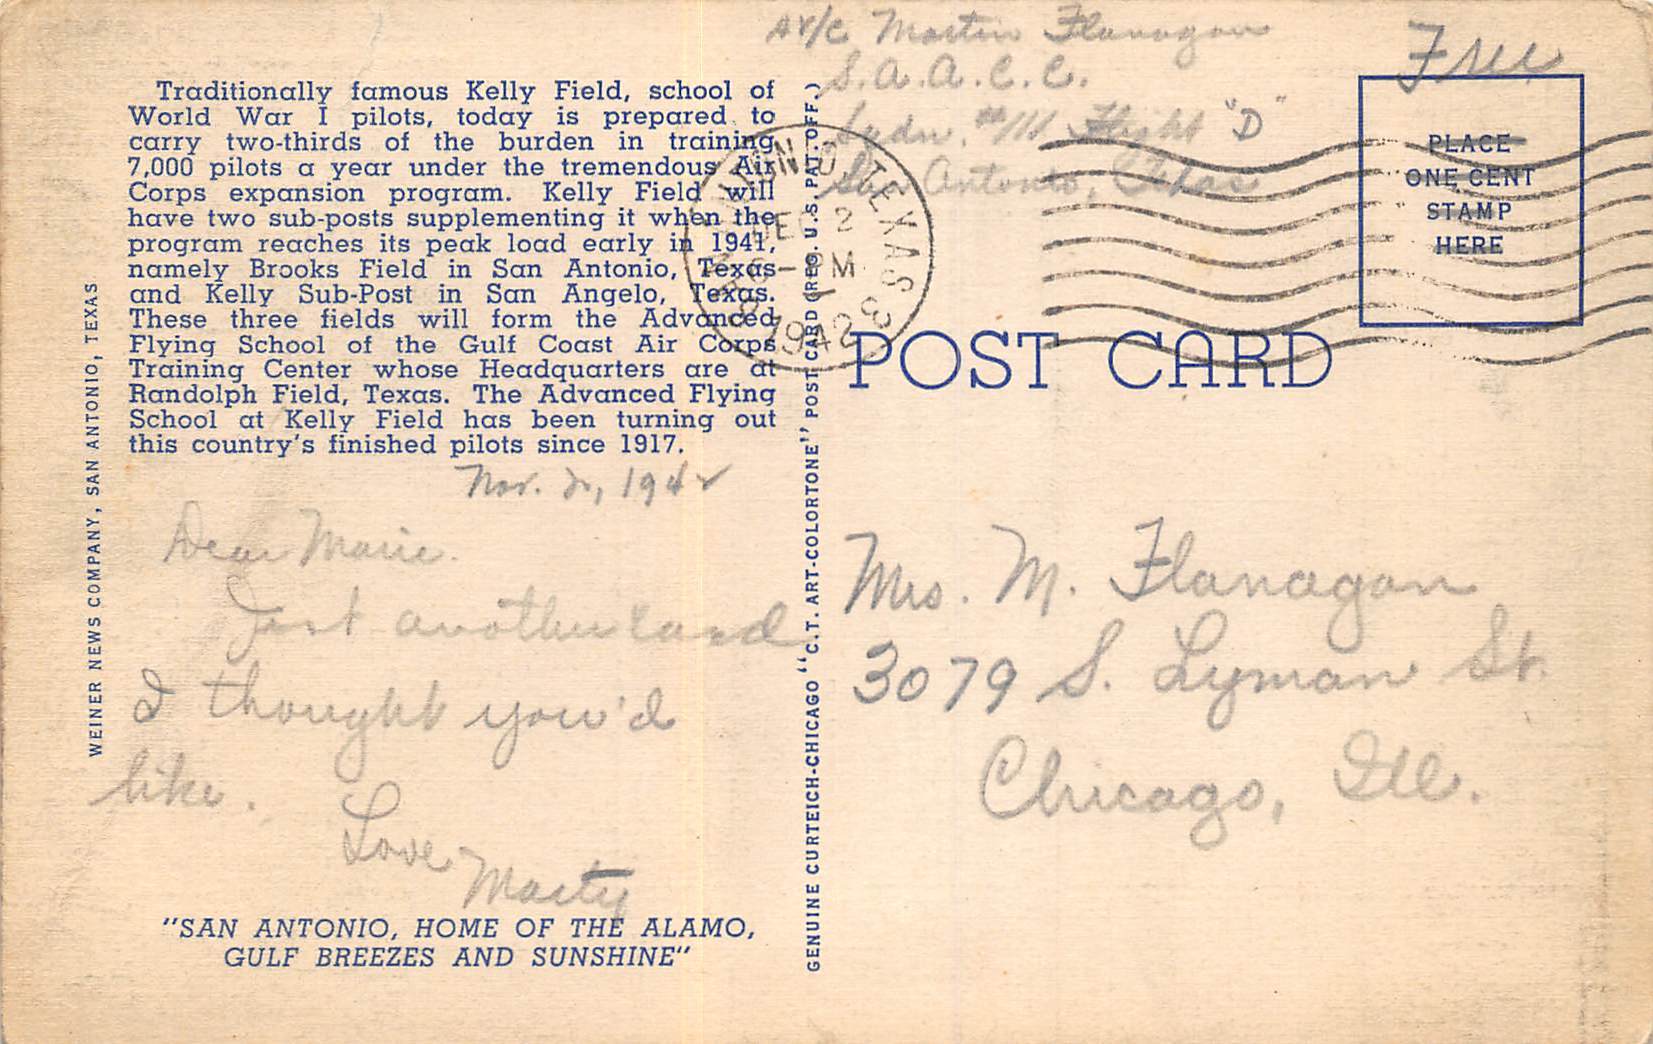 Av/c Martin Flanagan
S.A.A.C.C.
Sqdn. #111 Flight "D"
San Antonio, Texas
Free
PLACE
ONE CENT
STAMP
HERE
SAN ANTONIO, TEXAS
DEC 2
PM
1942
3
Traditionally famous Kelly Field, school of
World War I pilots, today is prepared to
carry two-thirds of the burden in training
7,000 pilots a year under the tremendous Air
Corps expansion program. Kelly Field will
have two sub-posts supplementing it when the
program reaches its peak load early in 1941,
namely Brooks Field in San Antonio, Texas
and Kelly Sub-Post in San Angelo, Texas.
These three fields will form the Advanced
Flying School of the Gulf Coast Air Corps
Training Center whose Headquarters are at
Randolph Field, Texas. The Advanced Flying
School at Kelly Field has been turning out
this country's finished pilots since 1917.
WEINER NEWS COMPANY, SAN ANTONIO, TEXAS
Nov. 2, 1942
Dear Marie.
Just another card
I thought you'd
like.
Love
Marty
"SAN ANTONIO, HOME OF THE ALAMO,
GULF BREEZES AND SUNSHINE"
GENUINE CURTEICH-CHICAGO "C.T. ART-COLORTONE" POST CARD (REG. U.S. PAT. OFF.)
POST CARD
Mrs. M. Flanagan
3079 S. Lyman St.
Chicago, Ill.